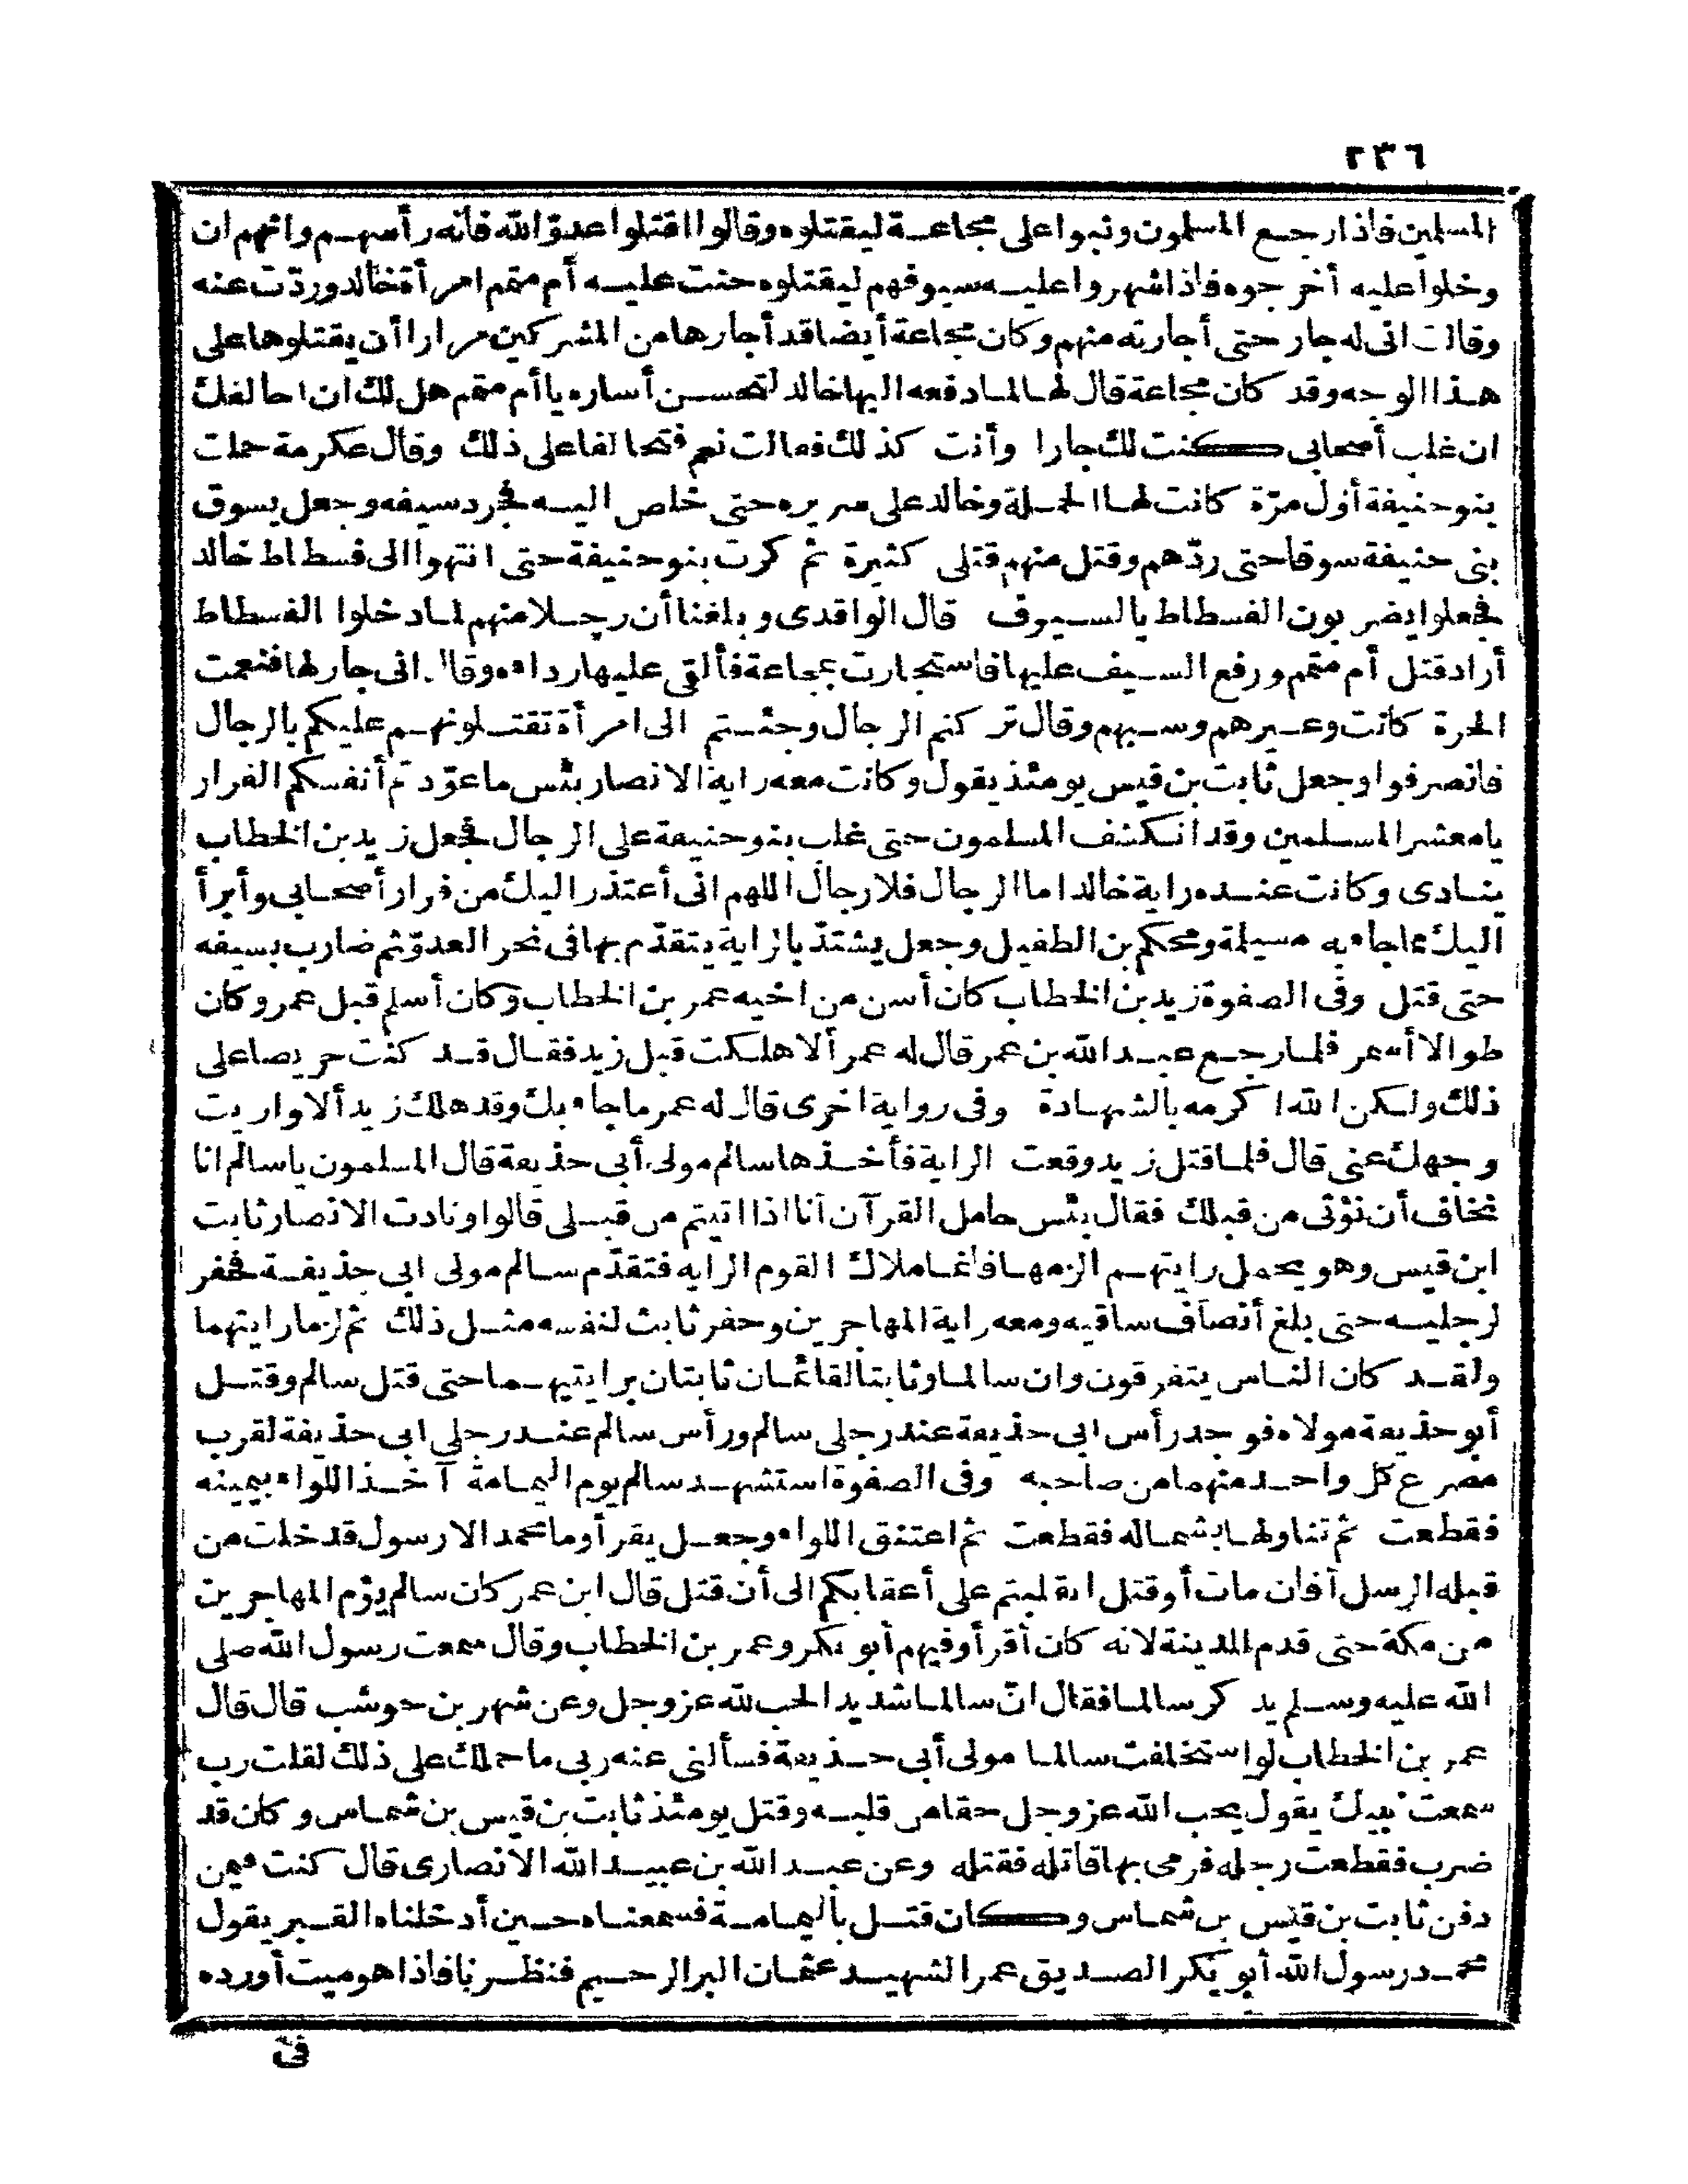 ٢٣٦
المسلمين فاذا رجع المسلمون ونبوا على مجاعة ليقتلوه وقالوا اقتلوا عدوّ الله فانه رأسهم وانهم ان
دخلوا عليه أخرجوه فاذا شهروا عليه سيوفهم ليقتلوه حنت عليه أم متمم امرأة خالد وردّت عنه
وقالت انى له جار حتى أجارته منهم وكان مجاعة أيضا قد أجارها من المشركين مرارا أن يقتلوها على
هذا الوجه وقد كان مجاعة قال لها لما دفعه اليها خالد لتحسن أساره يا أم متمم هل لك ان احالفك
ان غلب أصحابى كنت لك جارا وأنت كذلك فقالت نعم فتحالفا على ذلك وقال عكرمة حملت
بنو حنيفة أول مرّة كانت لها الحملة وخالد على سريره حتى خلص اليه فجرد سيفه وجعل يسوق
بنى حنيفة سوقا حتى ردّهم وقتل منهم قتلى كثيرة ثم كرت بنو حنيفة حتى انتهوا الى فسطاط خالد
فجعلوا يضربون الفسطاط بالسيوف قال الواقدى وبلغنا أن رجلا منهم لما دخلوا الفسطاط
أراد قتل أم متمم ورفع السيف عليها فاستجارت بمجاعة فألقى عليها رداءه وقال انى جار لها فنعمت
الحرة كانت وعيرهم وسبهم وقال تركتم الرجال وجئتم الى امرأة تقتلونهم عليكم بالرجال
فانصرفوا وجعل ثابت بن قيس يومئذ يقول وكانت معه راية الانصار بئس ما عوّدتم أنفسكم الفرار
يا معشر المسلمين وقد انكشف المسلمون حتى غلب بنو حنيفة على الرجال فجعل زيد بن الخطاب
ينادى وكانت عنده راية خالد اما الرجال فلا رجال اللهم انى أعتذر اليك من فرار أصحابى وأبرأ
اليك مما جاء به مسيلمة ومحكم بن الطفيل وجعل يشتدّ بالراية يتقدّم بها فى نحر العدوّ ثم ضارب بسيفه
حتى قتل وفى الصفوة زيد بن الخطاب كان أسن من اخيه عمر بن الخطاب وكان أسلم قبل عمر وكان
طوالا أسمر فلما رجع عبد الله بن عمر قال له عمر ألا هلكت قبل زيد فقال قد كنت حريصا على
ذلك ولكن الله اكرمه بالشهادة وفى رواية اخرى قال له عمر ما جاء بك وقد هلك زيد ألا واريت
وجهك عنى قال فلما قتل زيد وقعت الراية فأخذها سالم مولى أبى حذيفة قال المسلمون يا سالم انا
نخاف أن نؤتى من قبلك فقال بئس حامل القرآن أنا اذا اتيتم من قبلى قالوا ونادت الانصار ثابت
ابن قيس وهو يحمل رايتهم الزمها فانما ملاك القوم الراية فتقدّم سالم مولى ابى حذيفة فحفر
لرجليه حتى بلغ أنصاف ساقيه ومعه راية المهاجرين وحفر ثابت لنفسه مثل ذلك ثم لزما رايتهما
ولقد كان الناس يتفرقون وان سالما وثابتا لقائمان ثابتان برايتيهما حتى قتل سالم وقتل
أبو حذيفة مولاه فوجد رأس ابى حذيفة عند رجلى سالم ورأس سالم عند رجلى ابى حذيفة لقرب
مصرع كل واحد منهما من صاحبه وفى الصفوة استشهد سالم يوم اليمامة آخذ اللواء بيمينه
فقطعت ثم تناولها بشماله فقطعت ثم اعتنق اللواء وجعل يقرأ وما محمد الا رسول قد خلت من
قبله الرسل أفان مات أو قتل انقلبتم على أعقابكم الى أن قتل قال ابن عمر كان سالم يؤم المهاجرين
من مكة حتى قدم المدينة لانه كان أقرأ وفيهم أبو بكر وعمر بن الخطاب وقال سمعت رسول الله صلى
الله عليه وسلم يذكر سالما فقال انّ سالما شديد الحب لله عز وجل وعن شهر بن حوشب قال قال
عمر بن الخطاب لو استخلفت سالما مولى أبى حذيفة فسألنى عنه ربى ما حملك على ذلك لقلت رب
سمعت نبيك يقول يحب الله عز وجل حقا من قلبه وقتل يومئذ ثابت بن قيس بن شماس وكان قد
ضرب فقطعت رجله فرمى بها قاتله فقتله وعن عبد الله بن عبيد الله الانصارى قال كنت فيمن
دفن ثابت بن قيس بن شماس وكان قتل باليمامة فسمعناه حين أدخلناه القبر يقول
محمد رسول الله أبو بكر الصديق عمر الشهيد عثمان البر الرحيم فنظرنا فاذا هو ميت أورده
فى